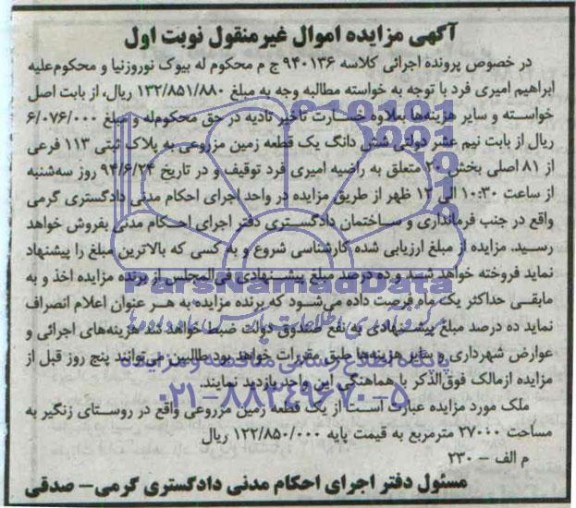 آگهی مزایده اموال غیرمنقول نوبت اول
در خصوص پرونده اجرائی کلاسه ۹۴۰۱۳۶ ج م محکوم له بیوک نوروزنیا و محکوم‌علیه
ابراهیم امیری فرد با توجه به خواسته مطالبه وجه به مبلغ ۱۳۲/۸۵۱/۸۸۰ ریال، از بابت اصل
خواسته و سایر هزینه‌ها بعلاوه خسارت تاخیر تادیه در حق محکوم‌له و مبلغ ۶/۰۷۶/۰۰۰
ریال از بابت نیم عشر دولتی شش دانگ یک قطعه زمین مزروعی به پلاک ثبتی ۱۱۳ فرعی
از ۸۱ اصلی بخش متعلق به راضیه امیری فرد توقیف و در تاریخ ۹۴/۶/۲۴ روز سه‌شنبه
از ساعت ۱۰:۳۰ الی ۱۲ ظهر از طریق مزایده در واحد اجرای احکام مدنی دادگستری گرمی
واقع در جنب فرمانداری و ساختمان دادگستری دفتر اجرای احکام مدنی بفروش خواهد
رسید. مزایده از مبلغ ارزیابی شده کارشناسی شروع و به کسی که بالاترین مبلغ را پیشنهاد
نماید فروخته خواهد شد و ده درصد مبلغ پیشنهادی فی‌المجلس از برنده مزایده اخذ و به
مابقی حداکثر یک ماه فرصت داده می‌شود که برنده مزایده به هر عنوان اعلام انصراف
نماید ده درصد مبلغ پیشنهادی به نفع صندوق دولت ضبط خواهد شد هزینه‌های اجرائی و
عوارض شهرداری و سایر هزینه‌ها طبق مقررات خواهد بود طالبین می‌توانند پنج روز قبل از
مزایده ازمالک فوق‌الذکر با هماهنگی این واحد بازدید نمایند.
ملک مورد مزایده عبارت است از یک قطعه زمین مزروعی واقع در روستای زنگیر به
مساحت ۲۷۰۰۰ مترمربع به قیمت پایه ۱۲۲/۸۵۰/۰۰۰ ریال
م الف – ۲۳۰
مسئول دفتر اجرای احکام مدنی دادگستری گرمی– صدقی
ParsNamadData
پایگاه اطلاع رسانی مناقصه و مزایده
۰۲۱-۸۸۳۴۹۶۷۰-۵